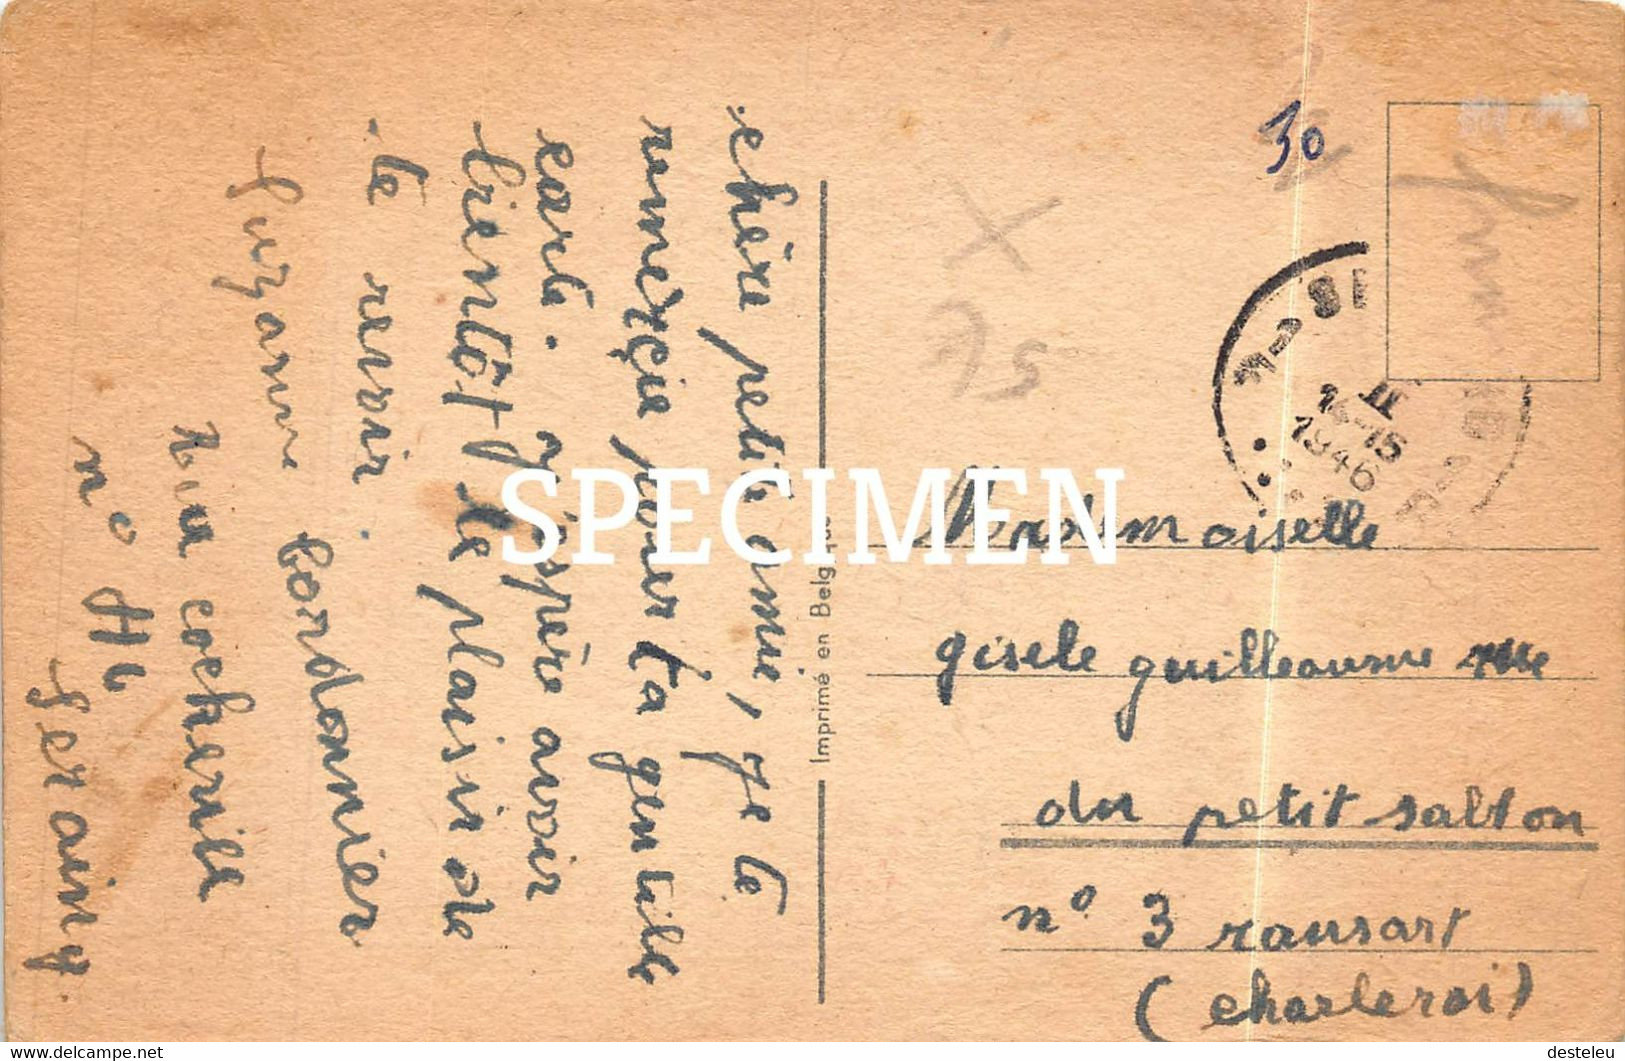 chère petite amie, je te
rumerçie pour ta gentille
carte. j'éspère avoir
bientôt le plaisir de
te revoir.
Suzanne Cordonnier
rue cockerille
n°
Seraing.
Imprimé en Belgique
SPECIMEN
30
14-15
II
1946
Mredemoiselle
gisele guilleaume rue
du petit salton
n° 3 ransart
(charleroi)
delcampe.net
desteleu